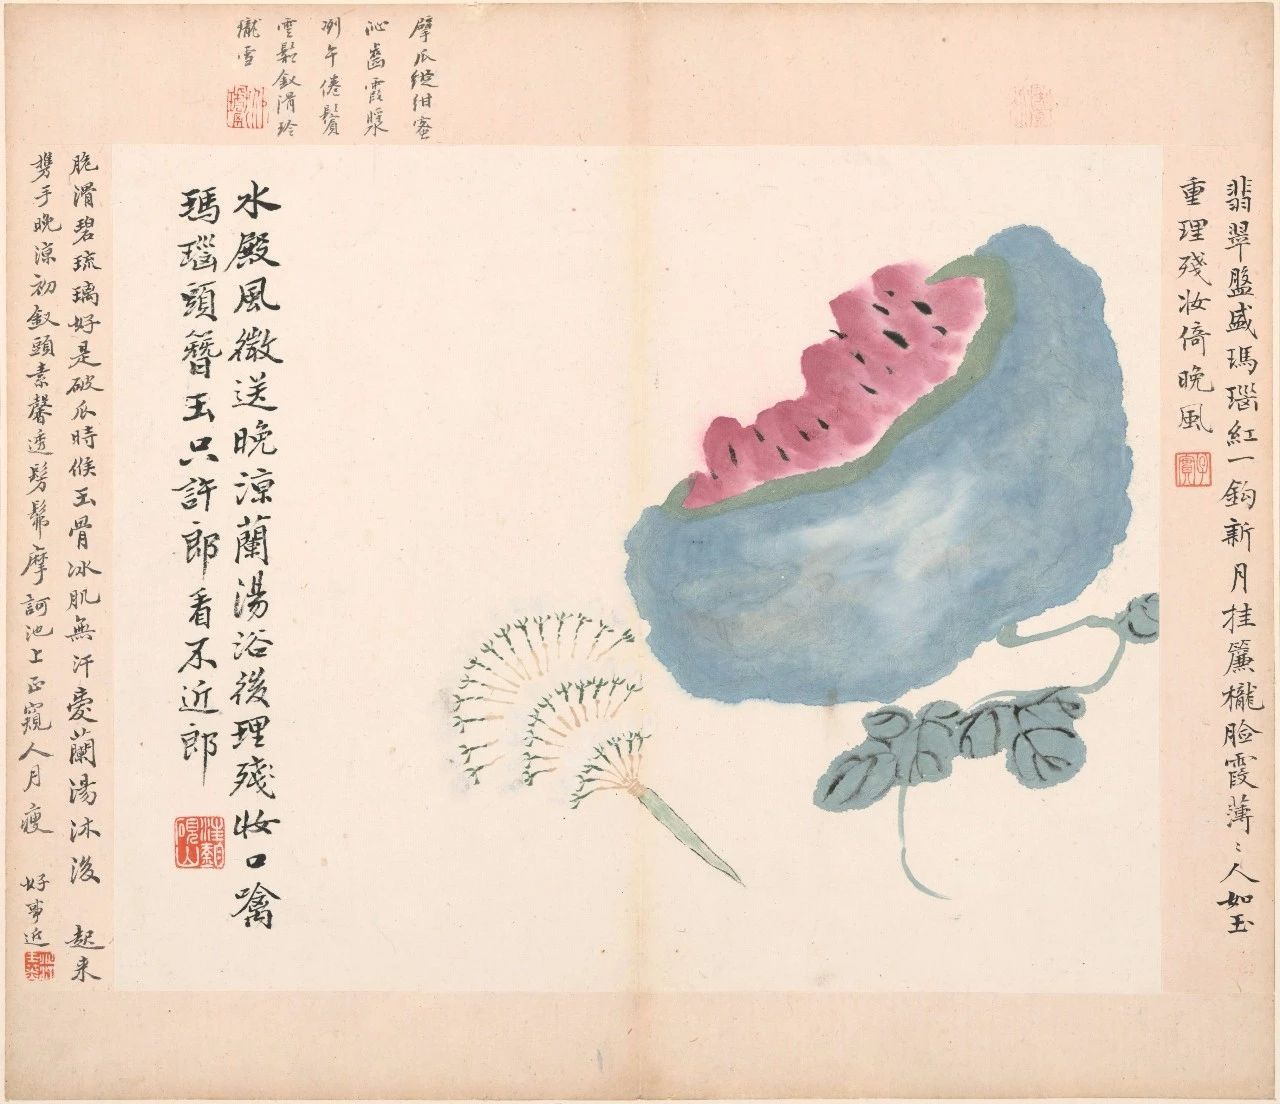 翡翠盤盛瑪瑙紅一鈎新月挂簾櫳臉霞薄〻人如玉
重理殘妝倚晚風
擘瓜綻紺蜜
沁齒霞漿
冽午倦鬢
雲鬆釵滑玲
瓏雪
水殿風微送晚涼蘭湯浴後理殘妝口噙
瑪瑙頭簪玉只許郎看不近郎
汪穀
硯山
脆滑碧琉璃好是破瓜時候玉骨冰肌無汗愛蘭湯沐後 起来
攜手晚涼初釵頭素馨透髣髴摩訶池上正窺人月瘦 好事近